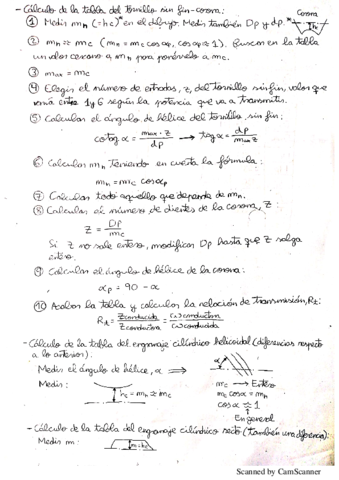 - Cálculo de la tabla del tornillo sin fin-corona: Corona
① Medir mn (=hc)* en el dibujo. Medir también Dp y dp. * hc
② mn ≈ mc (mn = mc cosαp, cosαp ≈ 1). Buscar en la tabla
un valor cercano a mn para ponérselo a mc.
③ max = mc
④ Elegir el número de entradas, z, del tornillo sin fin, valor que
varía entre 1 y 6 según la potencia que va a transmitir.
⑤ Calcular el ángulo de hélice del tornillo sin fin:
cotag α = max · z / dp → tag α = dp / max z
⑥ Calcular mn teniendo en cuenta la fórmula:
mn = mc cosαp
⑦ Calcular todo aquello que depende de mn.
⑧ Calcular el número de dientes de la corona, Z:
Z = Dp / mc
Si Z no sale entero, modificar Dp hasta que Z salga
entero.
⑨ Calcular el ángulo de hélice de la corona:
αp = 90 - α
⑩ Acabar la tabla y calcular la relación de transmisión, Rt:
Rt = Zconducida / Zconductora = ωconductora / ωconducida
- Cálculo de la tabla del engranaje cilíndrico helicoidal (diferencias respecto
a lo anterior):
Medir el ángulo de hélice, α ⇒ α
Medir: hc = mn ≈ mc mc → Entero
mc cosα = mn
cosα ≈ 1
En general
- Cálculo de la tabla del engranaje cilíndrico recto (también una diferencia):
Medir m: m = hc
Scanned by CamScanner